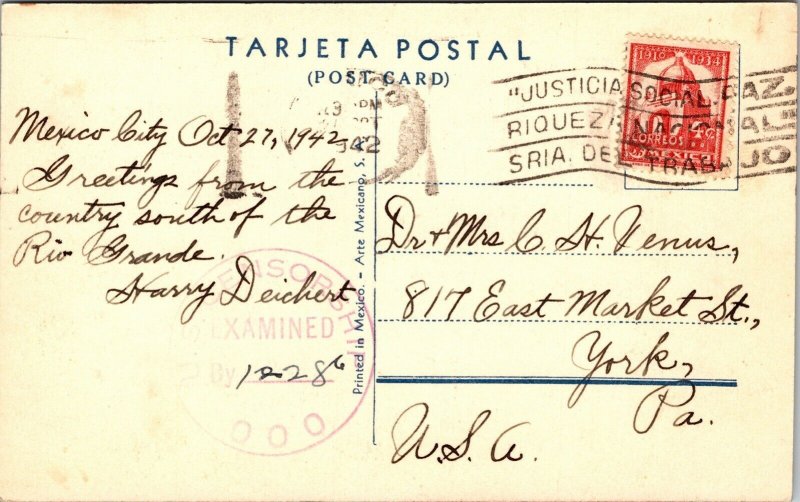 TARJETA POSTAL
(POST CARD)
1910 1934
CORREOS
"JUSTICIA SOCIAL
RIQUEZA NACIONAL
SRIA. DEL TRABAJO
PM
1942
Mexico City Oct 27, 1942
Greetings from the
country south of the
Rio Grande.
Harry Deichert
CENSORSHIP
EXAMINED
By 12286
Printed in Mexico. – Arte Mexicano, S. A.
Dr & Mrs C. H. Venus,
817 East Market St.,
York,
Pa.
U.S.A.